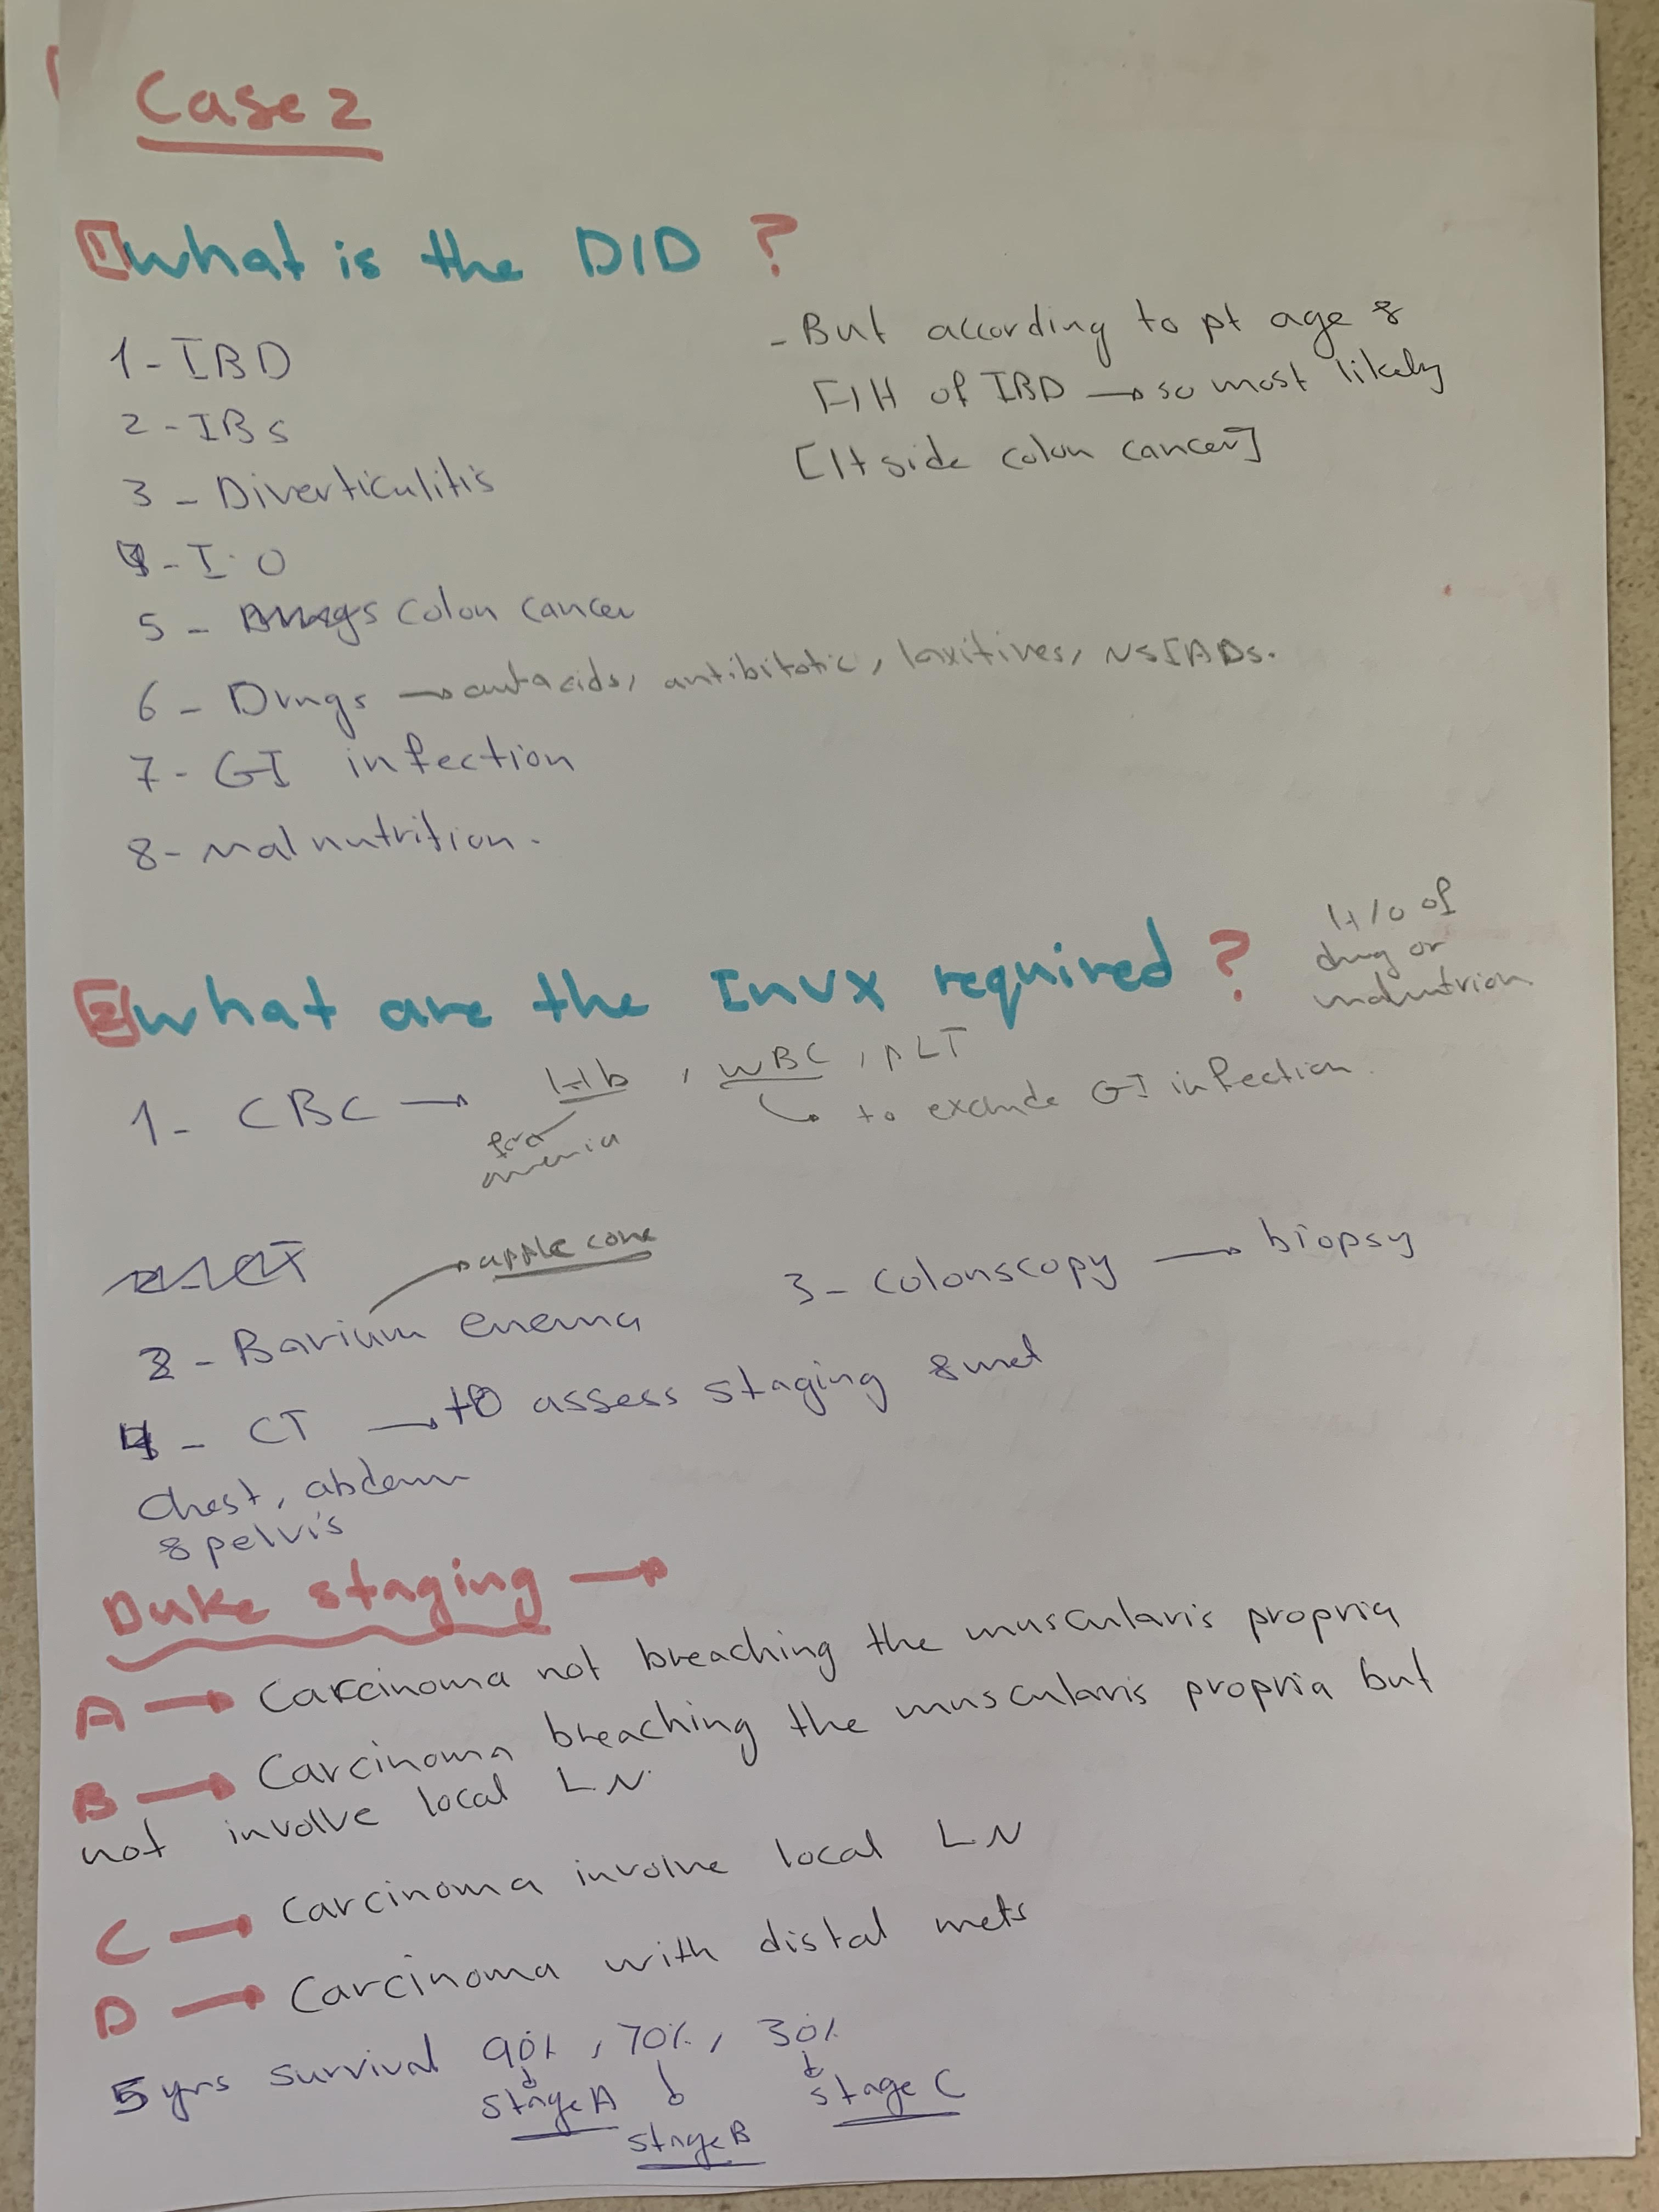 Case 2
1 What is the D/D ?
1- IBD
2- IBS
3- Diverticulitis
4- I.O
5- colon cancer
6- Drugs → antacids, antibitotic, laxitives, NSIADs.
7- GI infection
8- malnutrition.
- But according to pt age &
F/H of IBD → so most likely
[lt side colon cancer]
2 What are the Invx required ?
H/o of
drug or
malnutrion
1- CBC → Hb, WBC, PLT
for anemia
↳ to exclude GI infection.
→ apple core
2- Barium enema
3- Colonscopy → biopsy
4- CT → to assess staging & met
Chest, abdem
& pelvis
Duke staging →
A → Carcinoma not breaching the muscularis propria
B → Carcinoma breaching the muscularis propria but
not involve local LN.
C → Carcinoma involve local LN
D → Carcinoma with distal mets
5 yrs survival 90%, 70%, 30%
Stage A
Stage B
Stage C